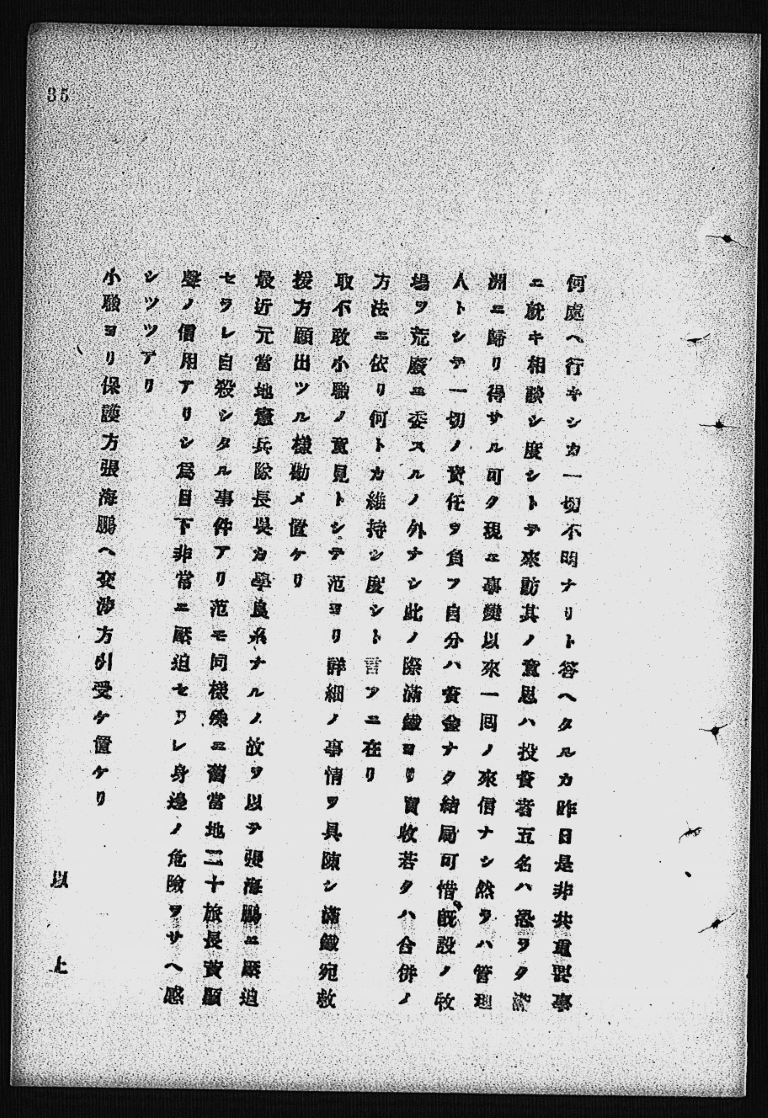 35
何處ヘ行キシカ一切不明ナリト答ヘタルカ昨日是非共重要事
ニ就キ相談シ度シトテ來訪其ノ意思ハ投資者五名ハ恐ラク滿
洲ニ歸リ得サル可ク現ニ事變以來一囘ノ來信ナシ然ラハ管理
人トシテ一切ノ責任ヲ負フ自分ハ資金ナク結局可惜既設ノ牧
場ヲ荒廢ニ委スルノ外ナシ此ノ際滿鐵ヨリ買收若クハ合併ノ
方法ニ依リ何トカ維持シ度シト言フニ在リ
取不敢小職ノ意見トシテ范ヨリ詳細ノ事情ヲ具陳シ滿鐵宛救
援方願出ツル樣勸メ置ケリ
最近元當地憲兵隊長吳カ學良系ナルノ故ヲ以テ張海鵬ニ壓迫
セラレ自殺シタル事件アリ范モ同樣殊ニ舊當地二十旅長黃顯
聲ノ信用アリシ爲目下非常ニ壓迫セラレ身邊ノ危險ヲサヘ感
シツツアリ
小職ヨリ保護方張海鵬ヘ交涉方引受ケ置ケリ
以上